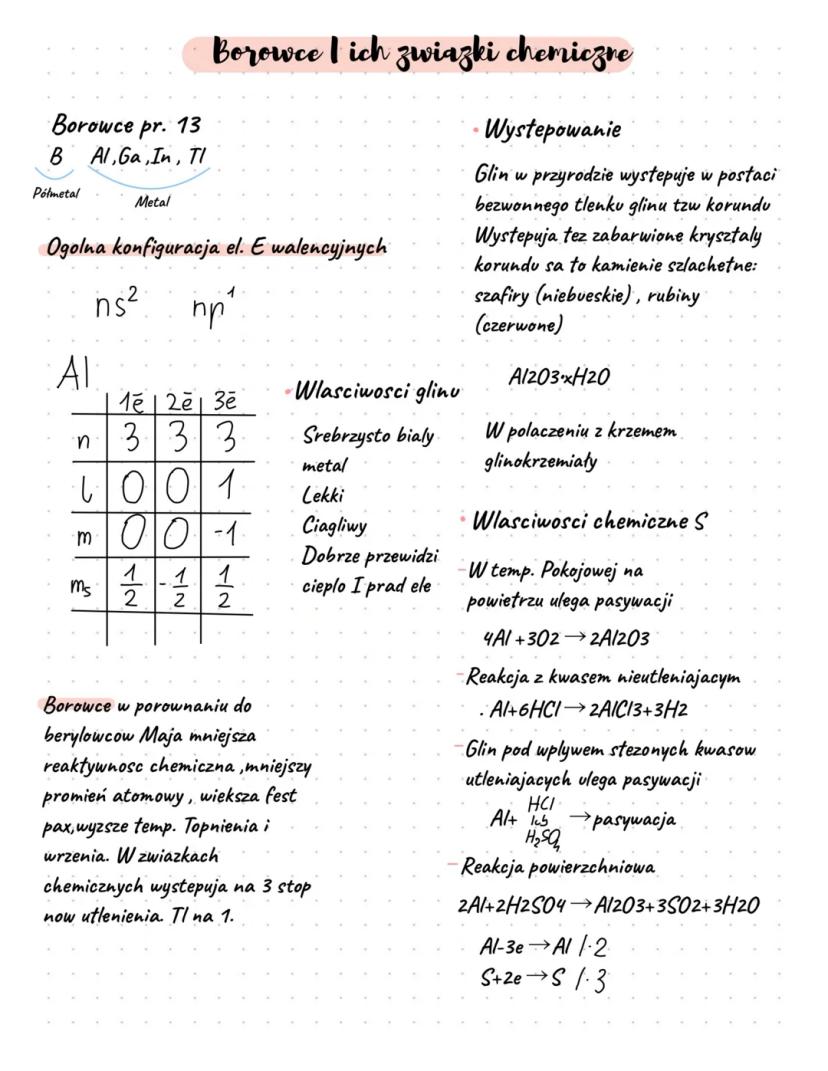 Borowce I ich zwiazki chemiczne
Borowce pr. 13
B Al,Ga,In, Tl
Półmetal
Metal
Ogolna konfiguracja el. E walencyjnych
ns² np¹
Al
1ē 2ē 3ē
n 3 3 3
l 0 0 1
m 0 0 -1
ms 1/2 -1/2 1/2
Borowce w porownaniu do
berylowców Maja mniejsza
reaktywnosc chemiczna ,mniejszy
promień atomowy , wieksza fest
pax,wyzsze temp. Topnienia i
wrzenia. W zwiazkach
chemicznych wystepuja na 3 stop
now utlenienia. Tl na 1.
• Wlasciwosci glinu
Srebrzysto bialy
metal
Lekki
Ciagliwy
Dobrze przewidzi
cieplo I prad ele
• Wystepowanie
Glin w przyrodzie wystepuje w postaci
bezwonnego tlenku glinu tzw korundu
Wystepuja tez zabarwione krysztaly
korundu sa to kamienie szlachetne:
szafiry (niebueskie) , rubiny
(czerwone)
Al2O3·xH2O
W polaczeniu z krzemem
glinokrzemiały
• Wlasciwosci chemiczne S
-W temp. Pokojowej na
powietrzu ulega pasywacji
4Al +3O2 → 2Al2O3
-Reakcja z kwasem nieutleniajacym
. Al+6HCl → 2AlCl3+3H2
-Glin pod wplywem stezonych kwasow
utleniajacych ulega pasywacji
HCl
Al+ lub → pasywacja
H₂SO₄
- Reakcja powierzchniowa
2Al+2H2SO4 → Al2O3+3SO2+3H2O
Al-3e → Al /·2
S+2e → S /·3